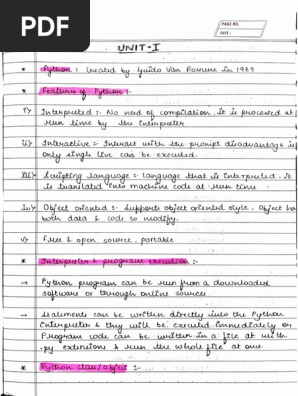 PDF
PAGE NO.
DATE :
UNIT-I
* Python : Created by Guido Van Rossum in 1989
* Features of Python :
i) Interpreted : No need of compilation, it is processed at
run time by the interpreter
ii) Interactive : Interact with the prompt disadvantage is
only single line can be executed.
iii) Scripting language : language that is interpreted. It
is translated into machine code at run time
iv) Object oriented : Supports object oriented style. Object has
both data & code to modify.
v) Free & open source, portable
* Interpreter & program execution :-
→ Python program can be run from a downloaded
software or through online source
→ Statements can be written directly into the Python
interpreter & they will be executed immediately or
Program code can be written in a file at with
.py extension & run the whole file at one
* Python class/object :-